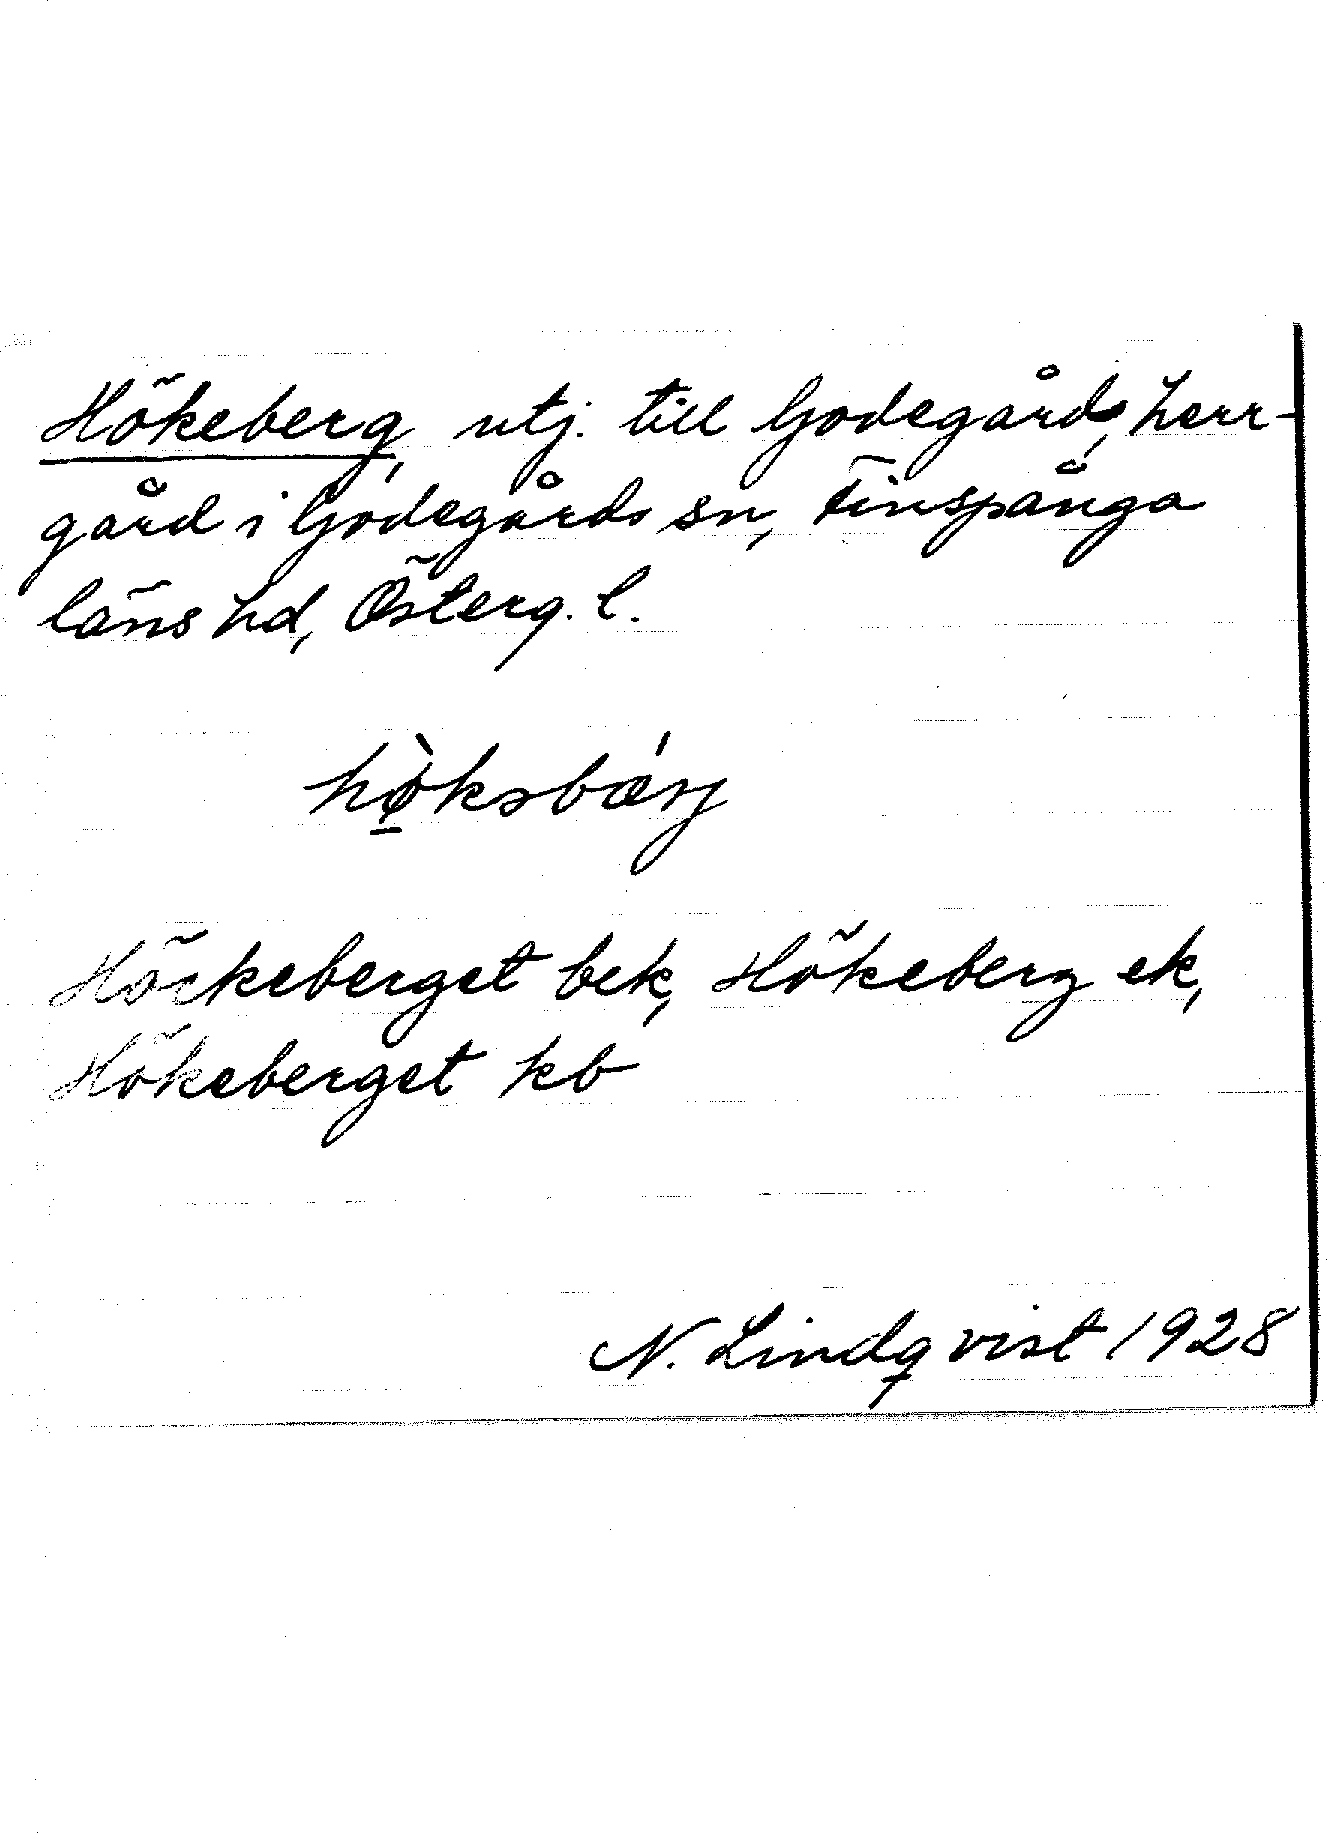 Hökeberg, utj. till Godegård, herr-
gård i Godegårds sn, Finspånga
läns hd, Österg. l.
hø̲̀ksbærj́
Höckeberget bek, Hökeberg ek,
Hökeberget kb
N. Lindqvist 1928